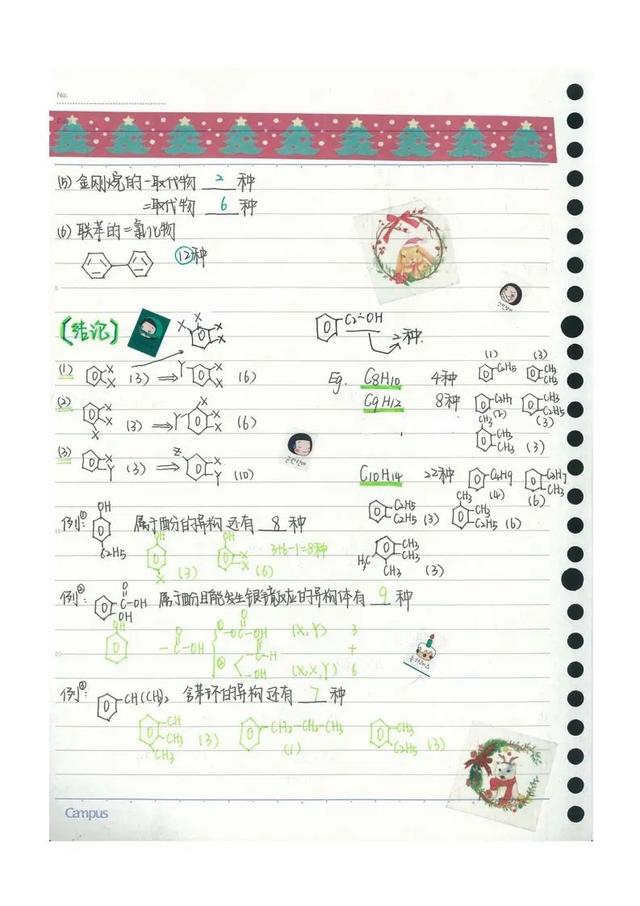 No.
(5) 金刚烷的一取代物 2 种
二取代物 6 种
(6) 联苯的二氯化物
12种
[结论]
X X X
C2—OH
2种.
(1) X X (3) ⇒ Y X X (6)
Eg. C8H10 4种 (1) C2H5 (3) CH3 CH3
(2) X X (3) ⇒ Y X X (6)
C9H12 8种 C3H7 (2) CH3 C2H5 (3)
CH3 CH3 CH3 (3)
(3) X Y (3) ⇒ Z X Y (10)
C10H14 22种 C4H9 (4) CH3 C3H7 (6)
C2H5 C2H5 (3) CH3 CH3 C2H5 (6)
例① OH C2H5 属于酚的异构还有 8 种
OH X (3) OH X X (6) 3+6-1=8种
H3C CH3 CH3 CH3 (3)
例② C-OH O OH 属于酚且能发生银镜反应的异构体有 9 种
OH -C-OH O O-C-OH (X,Y) 3
+
C-H O OH (X,X,Y) 6
例③ CH(CH3)2 含苯环的异构还有 7 种
CH CH3 CH3 (3) CH2-CH2-CH3 (1) CH3 C2H5 (3)
Campus